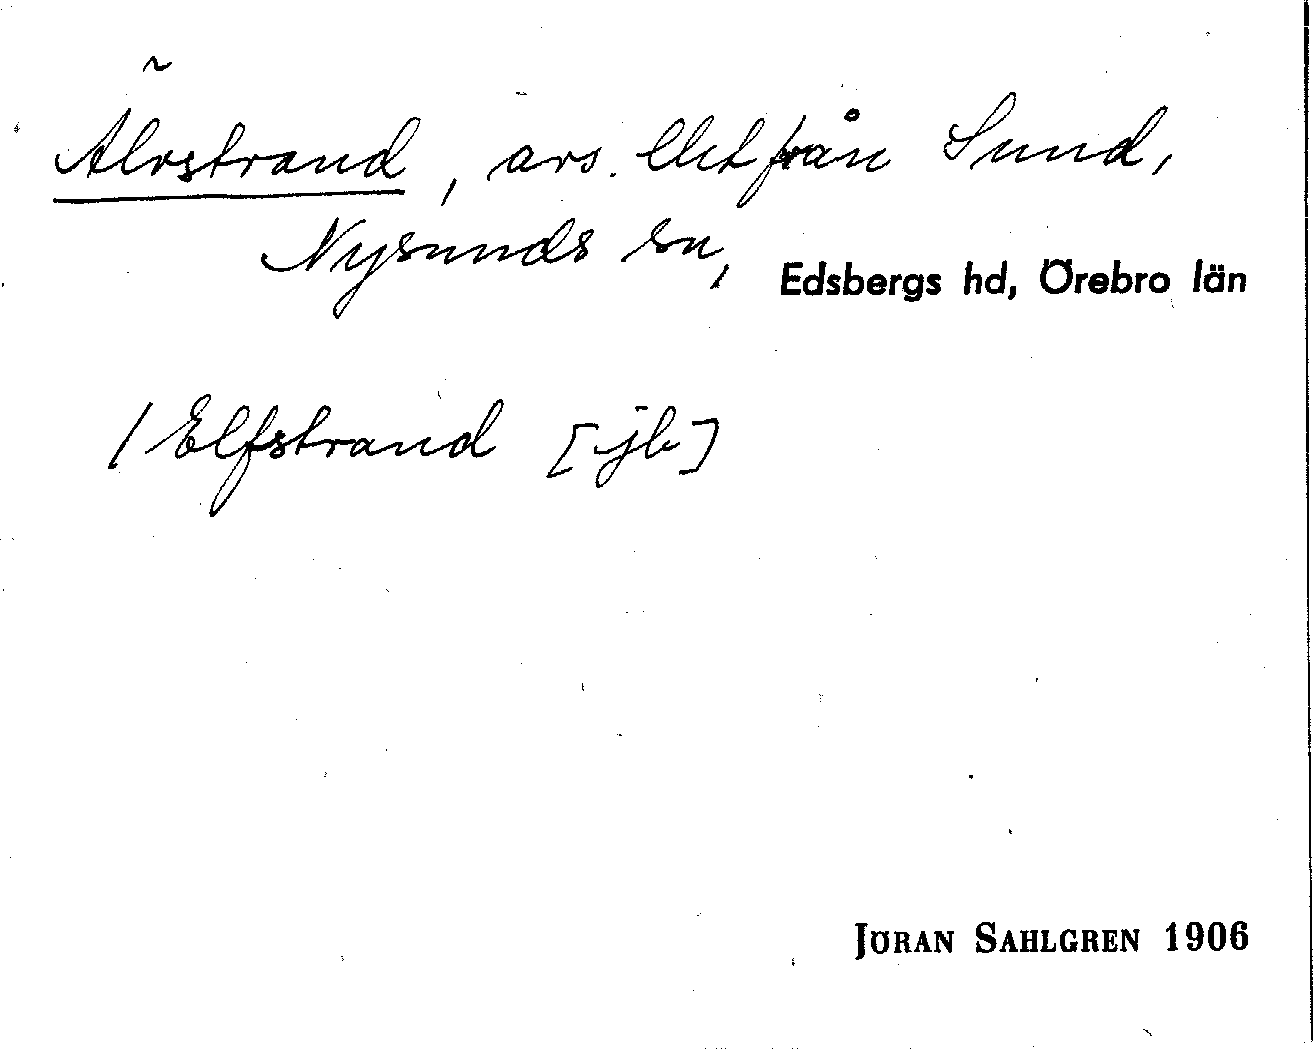 Älvstrand, avs. Utet från Sund,
Nysunds sn, Edsbergs hd, Örebro län
/ Elfstrand [jb]
JÖRAN SAHLGREN 1906